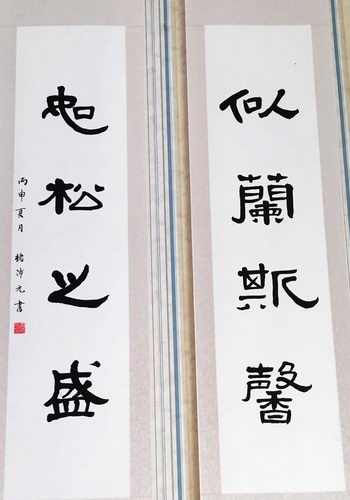 似蘭斯馨
如松之盛
丙申夏月 元書